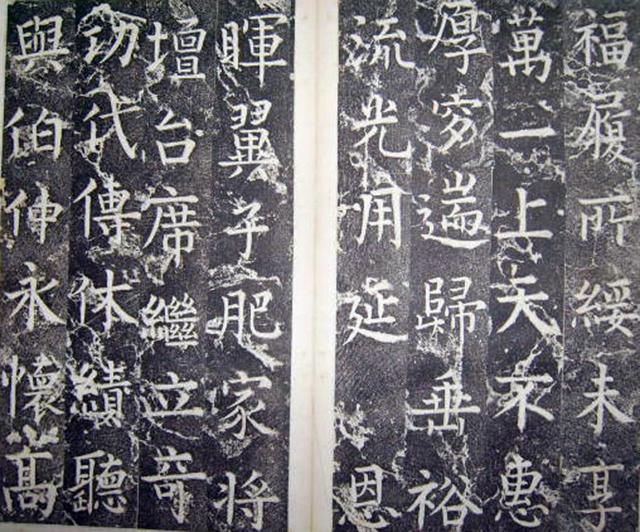 福履所綏未享
萬一上天不惠
厚穸遄歸垂裕
流光用延恩
暉翼子肥家将
壇台席繼立奇
功代傳休績聽
與伯仲永懷高